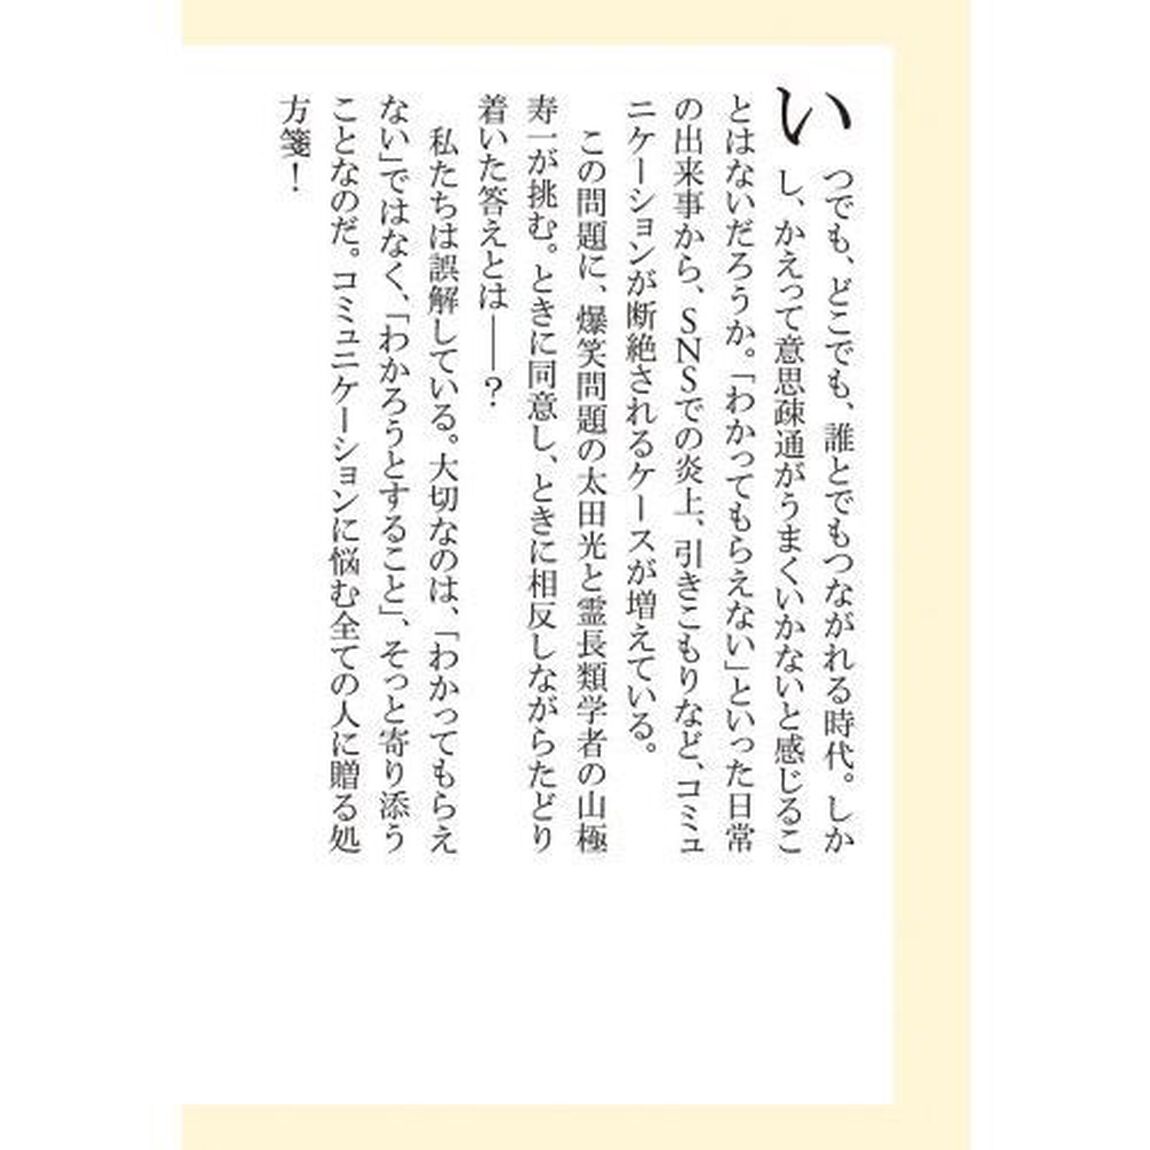 いつでも、どこでも、誰とでもつながれる時代。しか
し、かえって意思疎通がうまくいかないと感じるこ
とはないだろうか。「わかってもらえない」といった日常
の出来事から、SNSでの炎上、引きこもりなど、コミュ
ニケーションが断絶されるケースが増えている。
この問題に、爆笑問題の太田光と霊長類学者の山極
寿一が挑む。ときに同意し、ときに相反しながらたどり
着いた答えとは――？
私たちは誤解している。大切なのは、「わかってもらえ
ない」ではなく、「わかろうとすること」、そっと寄り添う
ことなのだ。コミュニケーションに悩む全ての人に贈る処
方箋！